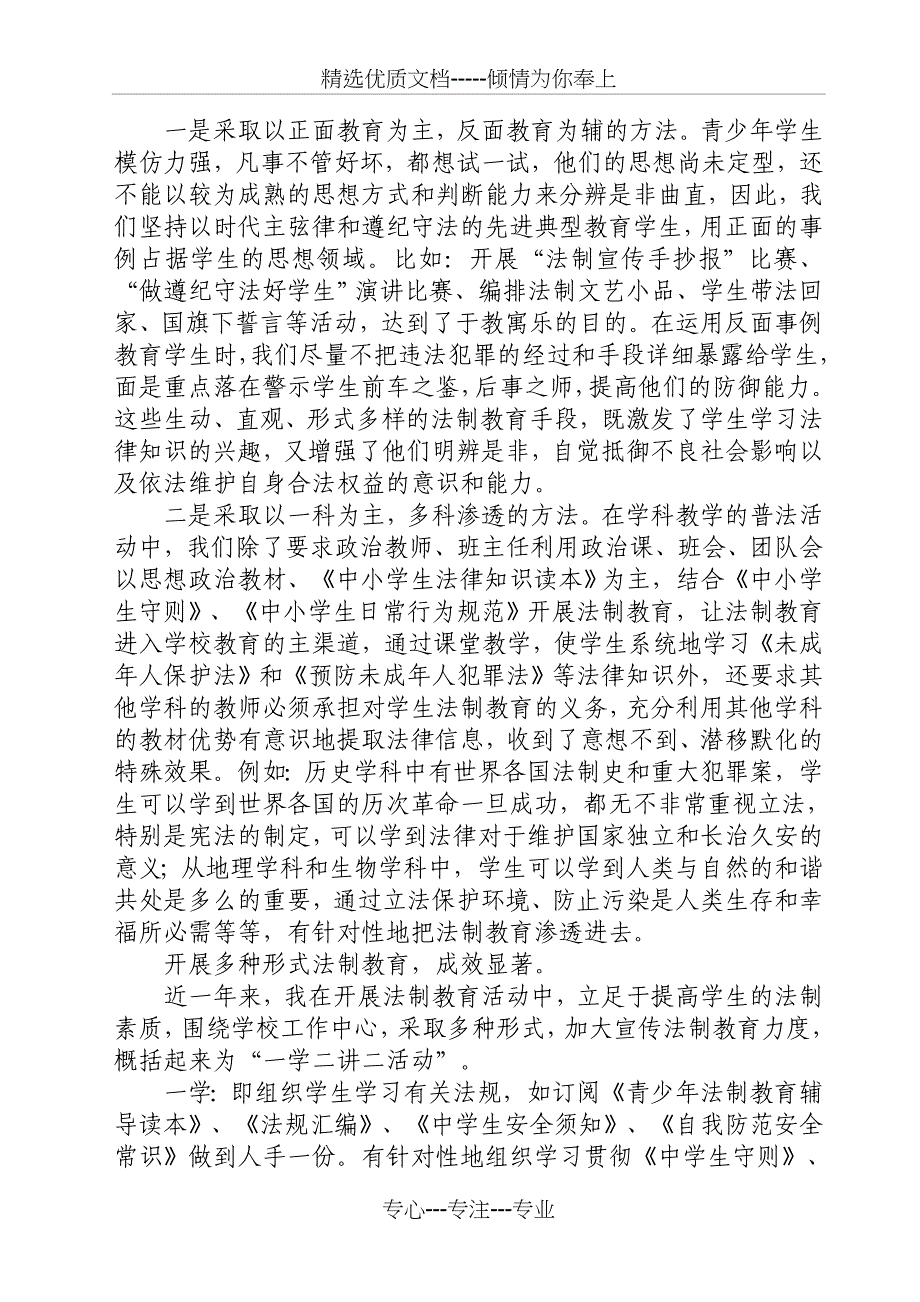 精选优质文档-----倾情为你奉上
一是采取以正面教育为主，反面教育为辅的方法。青少年学生
模仿力强，凡事不管好坏，都想试一试，他们的思想尚未定型，还
不能以较为成熟的思想方式和判断能力来分辨是非曲直，因此，我
们坚持以时代主弦律和遵纪守法的先进典型教育学生，用正面的事
例占据学生的思想领域。比如：开展“法制宣传手抄报”比赛、
“做遵纪守法好学生”演讲比赛、编排法制文艺小品、学生带法回
家、国旗下誓言等活动，达到了于教寓乐的目的。在运用反面事例
教育学生时，我们尽量不把违法犯罪的经过和手段详细暴露给学生，
面是重点落在警示学生前车之鉴，后事之师，提高他们的防御能力。
这些生动、直观、形式多样的法制教育手段，既激发了学生学习法
律知识的兴趣，又增强了他们明辨是非，自觉抵御不良社会影响以
及依法维护自身合法权益的意识和能力。
二是采取以一科为主，多科渗透的方法。在学科教学的普法活
动中，我们除了要求政治教师、班主任利用政治课、班会、团队会
以思想政治教材、《中小学生法律知识读本》为主，结合《中小学
生守则》、《中小学生日常行为规范》开展法制教育，让法制教育
进入学校教育的主渠道，通过课堂教学，使学生系统地学习《未成
年人保护法》和《预防未成年人犯罪法》等法律知识外，还要求其
他学科的教师必须承担对学生法制教育的义务，充分利用其他学科
的教材优势有意识地提取法律信息，收到了意想不到、潜移默化的
特殊效果。例如：历史学科中有世界各国法制史和重大犯罪案，学
生可以学到世界各国的历次革命一旦成功，都无不非常重视立法，
特别是宪法的制定，可以学到法律对于维护国家独立和长治久安的
意义；从地理学科和生物学科中，学生可以学到人类与自然的和谐
共处是多么的重要，通过立法保护环境、防止污染是人类生存和幸
福所必需等等，有针对性地把法制教育渗透进去。
开展多种形式法制教育，成效显著。
近一年来，我在开展法制教育活动中，立足于提高学生的法制
素质，围绕学校工作中心，采取多种形式，加大宣传法制教育力度，
概括起来为“一学二讲二活动”。
一学：即组织学生学习有关法规，如订阅《青少年法制教育辅
导读本》、《法规汇编》、《中学生安全须知》、《自我防范安全
常识》做到人手一份。有针对性地组织学习贯彻《中学生守则》、
专心---专注---专业